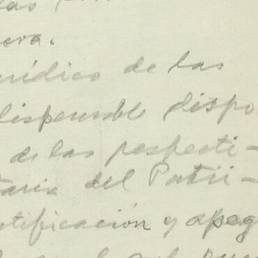 era.
urídico de las
dispensable dispo
de las respecti-
taria del Patri-
otificación y apeg